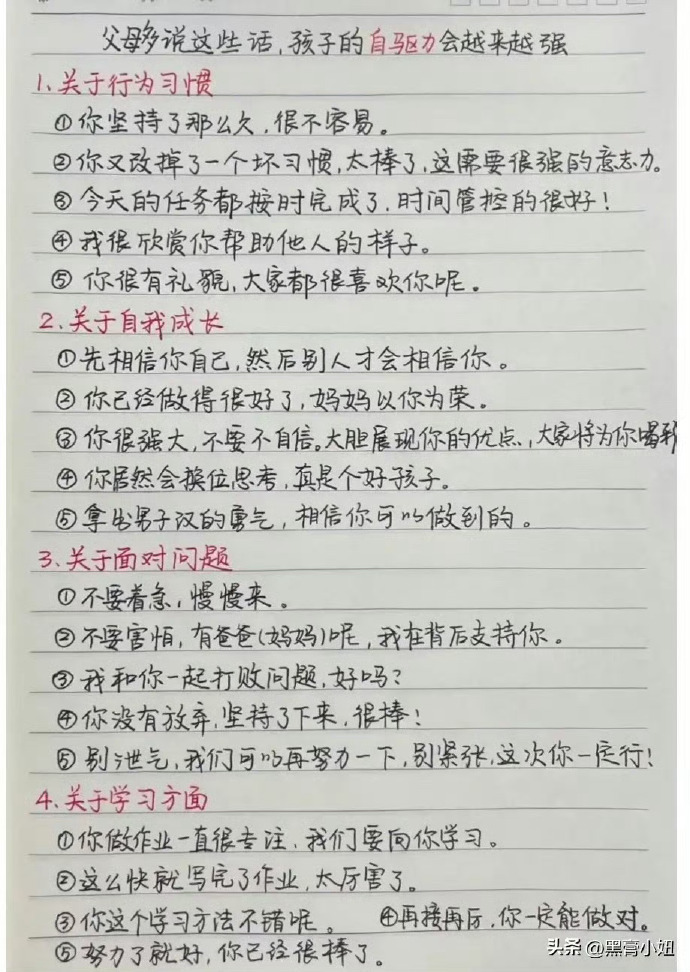 父母多说这些话,孩子的自驱力会越来越强
1.关于行为习惯
①你坚持了那么久,很不容易。
②你又改掉了一个坏习惯,太棒了,这需要很强的意志力。
③今天的任务都按时完成了,时间管控的很好!
④我很欣赏你帮助他人的样子。
⑤你很有礼貌,大家都很喜欢你呢。
2.关于自我成长
①先相信你自己,然后别人才会相信你。
②你已经做得很好了,妈妈以你为荣。
③你很强大,不要不自信。大胆展现你的优点,大家将为你喝
④你居然会换位思考,真是个好孩子。
⑤拿出男子汉的勇气,相信你可以做到的。
3.关于面对问题
①不要着急,慢慢来。
②不要害怕,有爸爸(妈妈)呢,我在背后支持你。
③我和你一起打败问题,好吗?
④你没有放弃,坚持了下来,很棒!
⑤别泄气,我们可以再努力一下,别紧张,这次你一定行!
4.关于学习方面
①你做作业一直很专注,我们要向你学习。
②这么快就写完了作业,太厉害了。
③你这个学习方法不错呢。 ④再接再厉,你一定能做对。
⑤努力了就好,你已经很棒了。
头条 @黑膏小姐